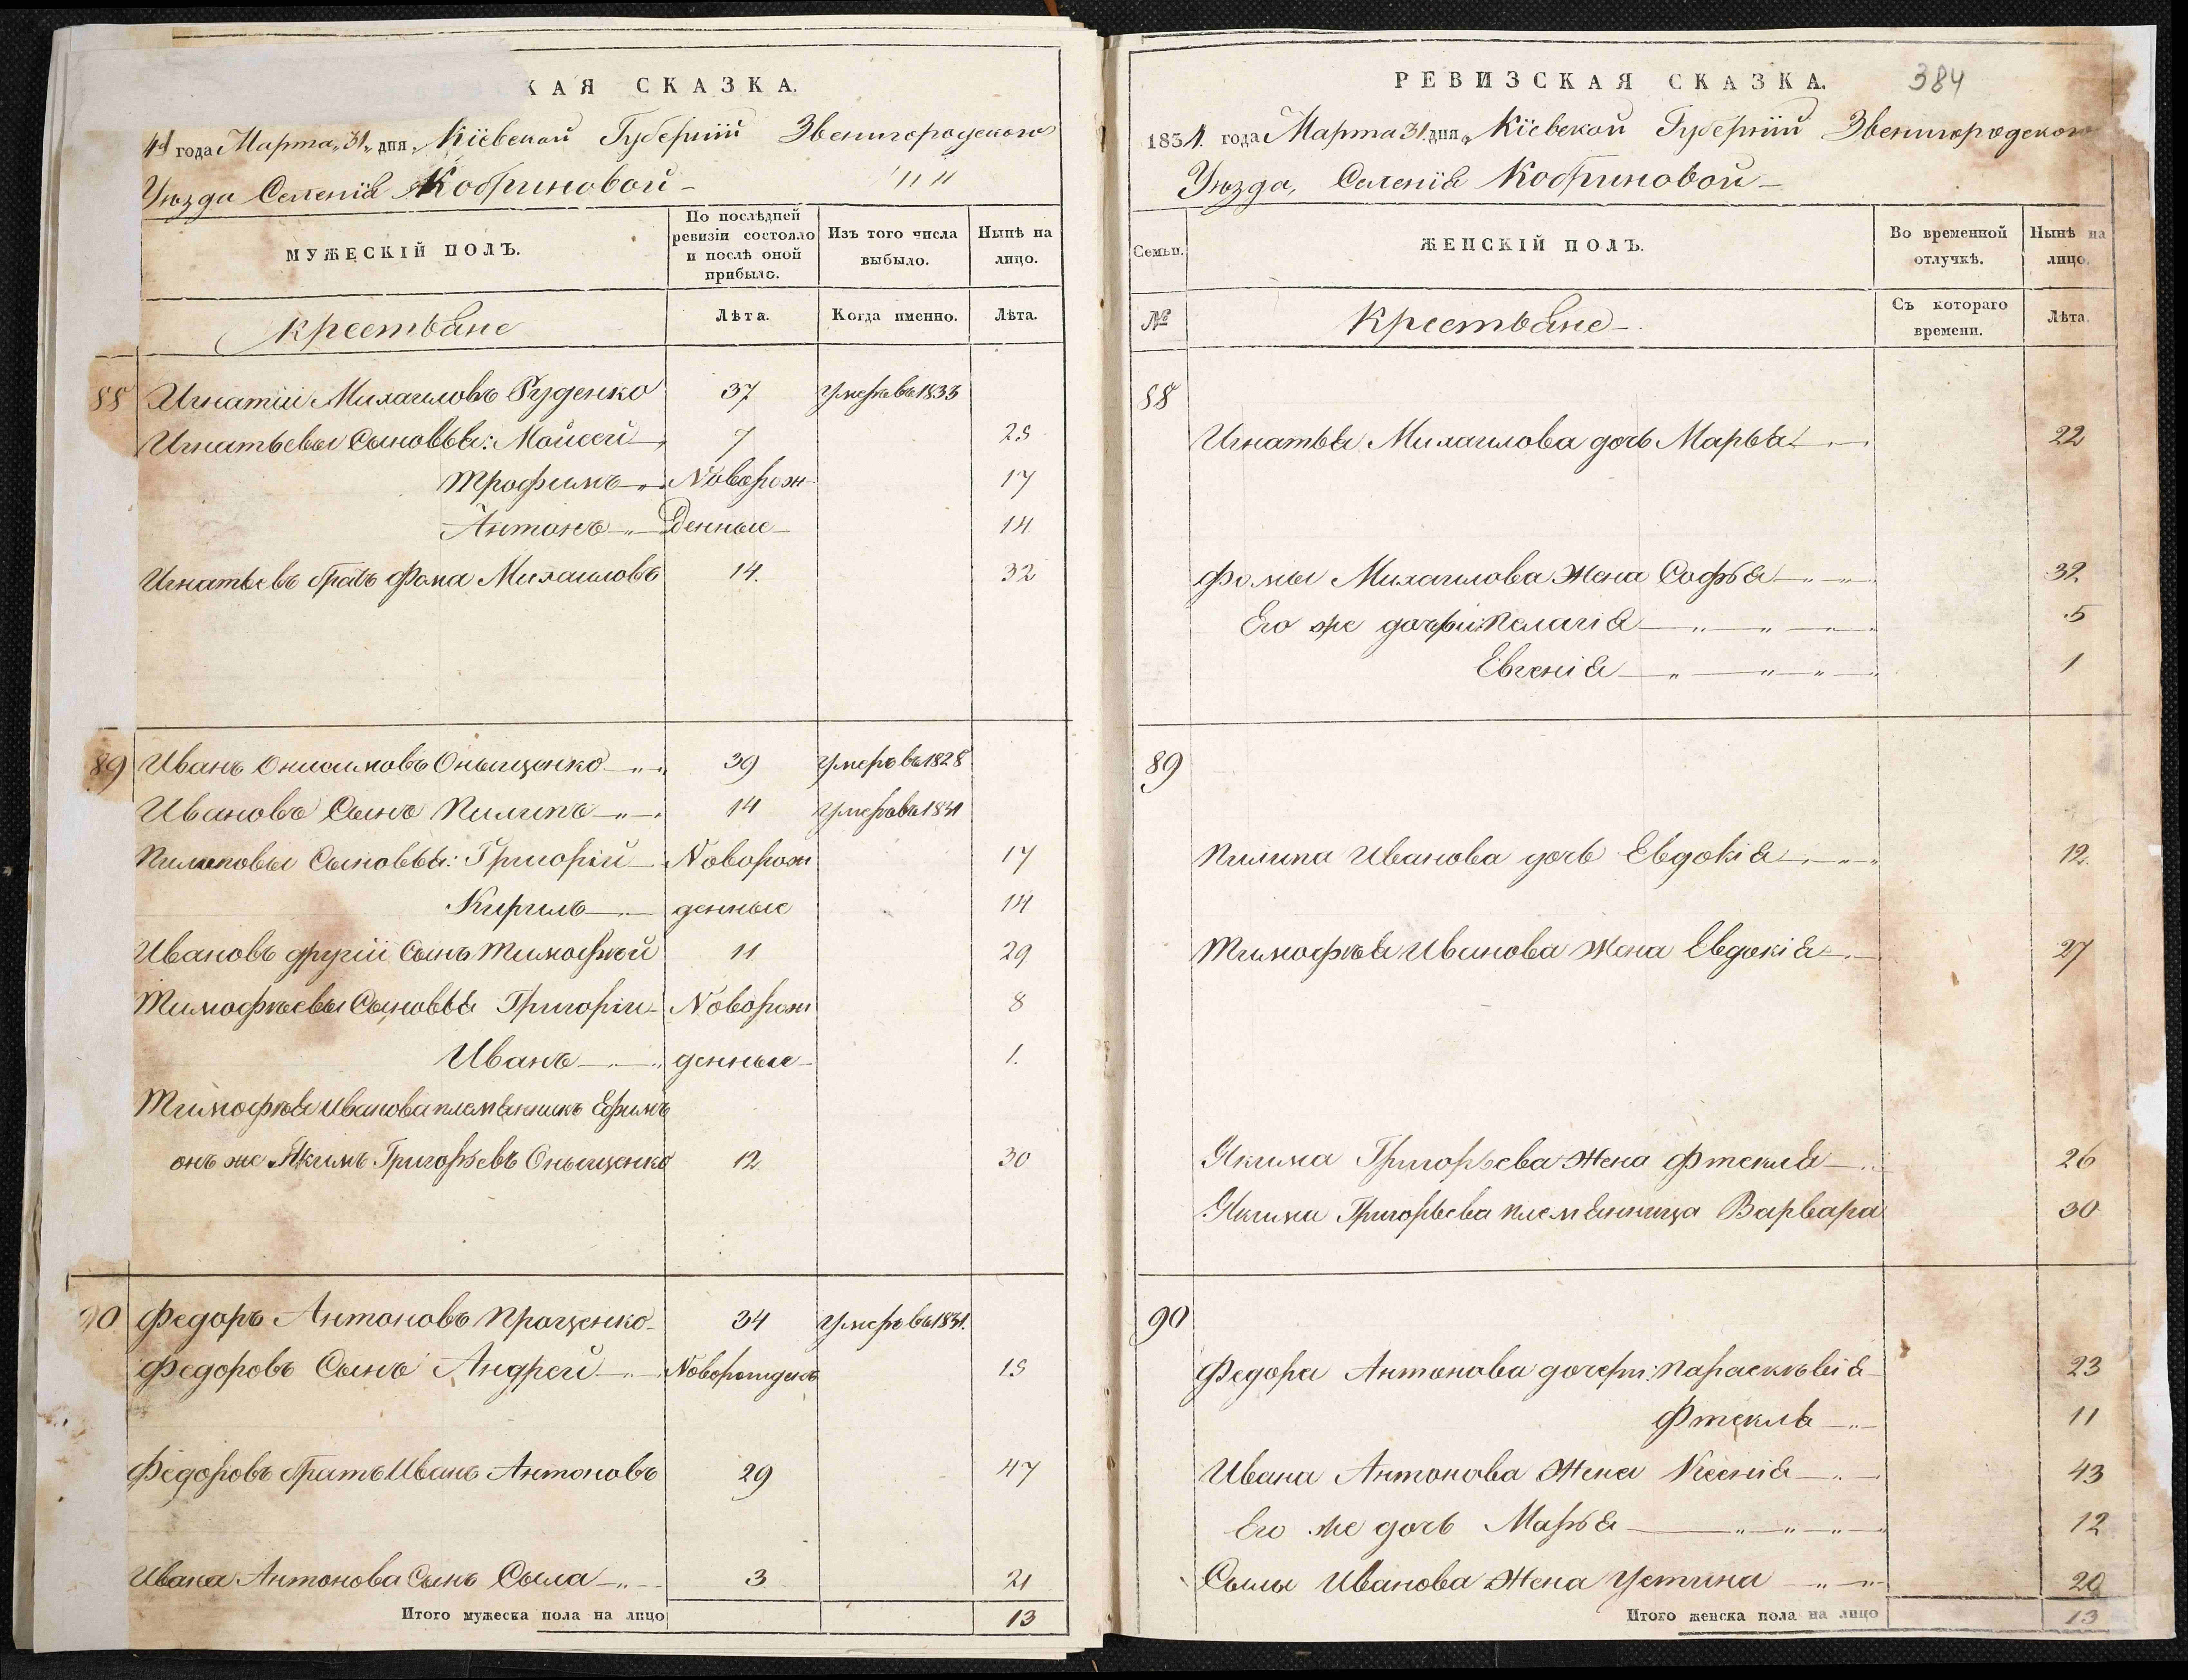 КАЯ СКАЗКА.
года Марта „31„ дня „Кіевской Губерніи Звенигородского
Уѣзда Селенія Кобриновой –
МУЖЕСКІЙ ПОЛЪ.
По послѣдней ревизіи состояло и послѣ оной прибыло.
Изъ того числа выбыло.
Нынѣ на лицо.
Крестьяне
Лѣта.
Когда именно.
Лѣта.
88 Игнатій Михаиловъ Руденко 37 Умеръ въ 1833
Игнатьевы Сыновья: Моисей 7 25
Трофимъ Новорож 17
Антонъ денные 14
Игнатьевъ братъ Фома Михаиловъ 14. 32
89 Иванъ Онисимовъ Оныщенко 39 Умеръ въ 1828
Ивановъ Сынъ Пилипъ 14 Умеръ въ 1831
Пилиповы Сыновья: Григорій Новорож 17
Кирилъ денные 14
Ивановъ другій Сынъ Тимофѣй 11 29
Тимофѣевы Сыновья Григорій Новорож 8
Иванъ денные 1.
Тимофѣя Иванова племянникъ Ефимъ
онъ же Якимъ Григорьевъ Оныщенко 12 30
90 Федоръ Антоновъ Проценко 34 Умеръ въ 1831.
Федоровъ Сынъ Андрей Новорожденъ 15
Федоровъ братъ Иванъ Антоновъ 29 47
Ивана Антонова Сынъ Сыла 3 21
Итого мужеска пола на лицо 13
РЕВИЗСКАЯ СКАЗКА. 384
1834. года Марта 31. дня „Кіевской Губерніи Звенигородского
Уѣзда, Селенія Кобриновой –
Семьи.
ЖЕНСКІЙ ПОЛЪ.
Во временной отлучкѣ.
Нынѣ на лицо.
№
Крестьяне
Съ котораго времени.
Лѣта.
88
Игнатья Михаилова дочь Марья 22
Фомы Михаилова Жена Софья 32
Его же дочери: Пелагія 5
Евгенія 1
89
Пилипа Иванова дочь Евдокія 12.
Тимофѣя Иванова Жена Евдокія 27
Якима Григорьева Жена Фтекля 26
Якима Григорьева племянница Варвара 30
90
Федора Антонова дочери: Параскѣвія 23
Фтекля 11
Ивана Антонова Жена Ксенія 43
Его же дочь Марья 12
Сылы Иванова Жена Устина 20
Итого женска пола на лицо 13